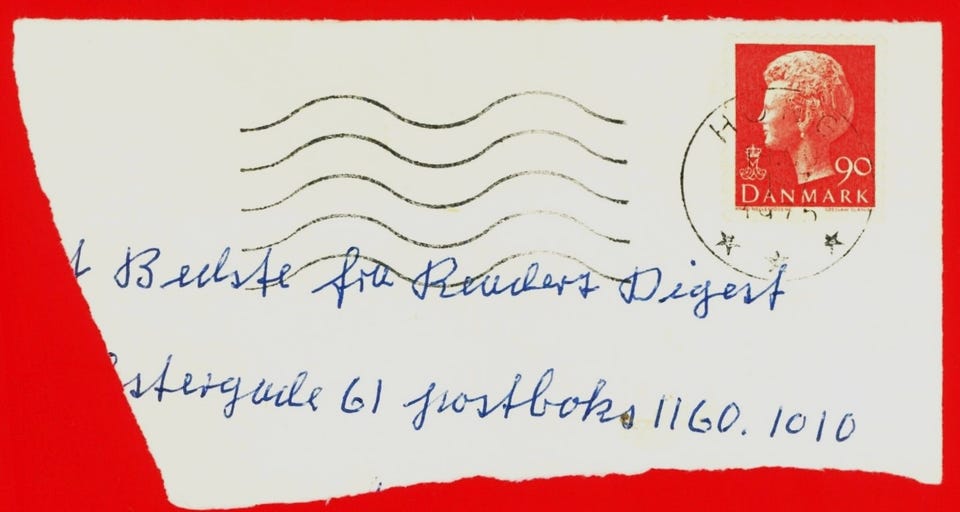 90
DANMARK
1975
t Bedste fra Readers Digest
stergade 61 postboks 1160. 1010